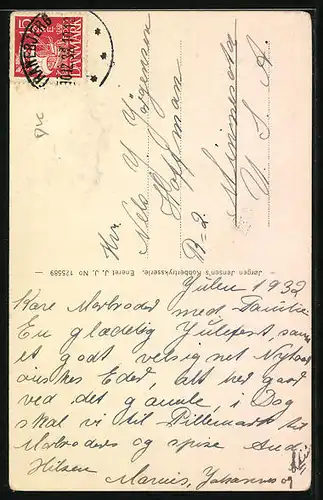 15
DANMARK
TRANEBJERG
Hr.
Nels J Jörgenson
Hoffman
R=2.
Minnesota
U. S. A.
— Jørgen Jensen's Kobbertryksserie. Eneret J. J. No 125589 —
Julen 1932
Kare Morbroder med Familie
En glædelig Julefest, samt
et godt velsignet Nytaar
ønskes Eder, alt her gaar
ved det gamle, i Dag
skal vi til Pillemark til
Morbroders og spise And
Hilsen
Marius, Johannes og